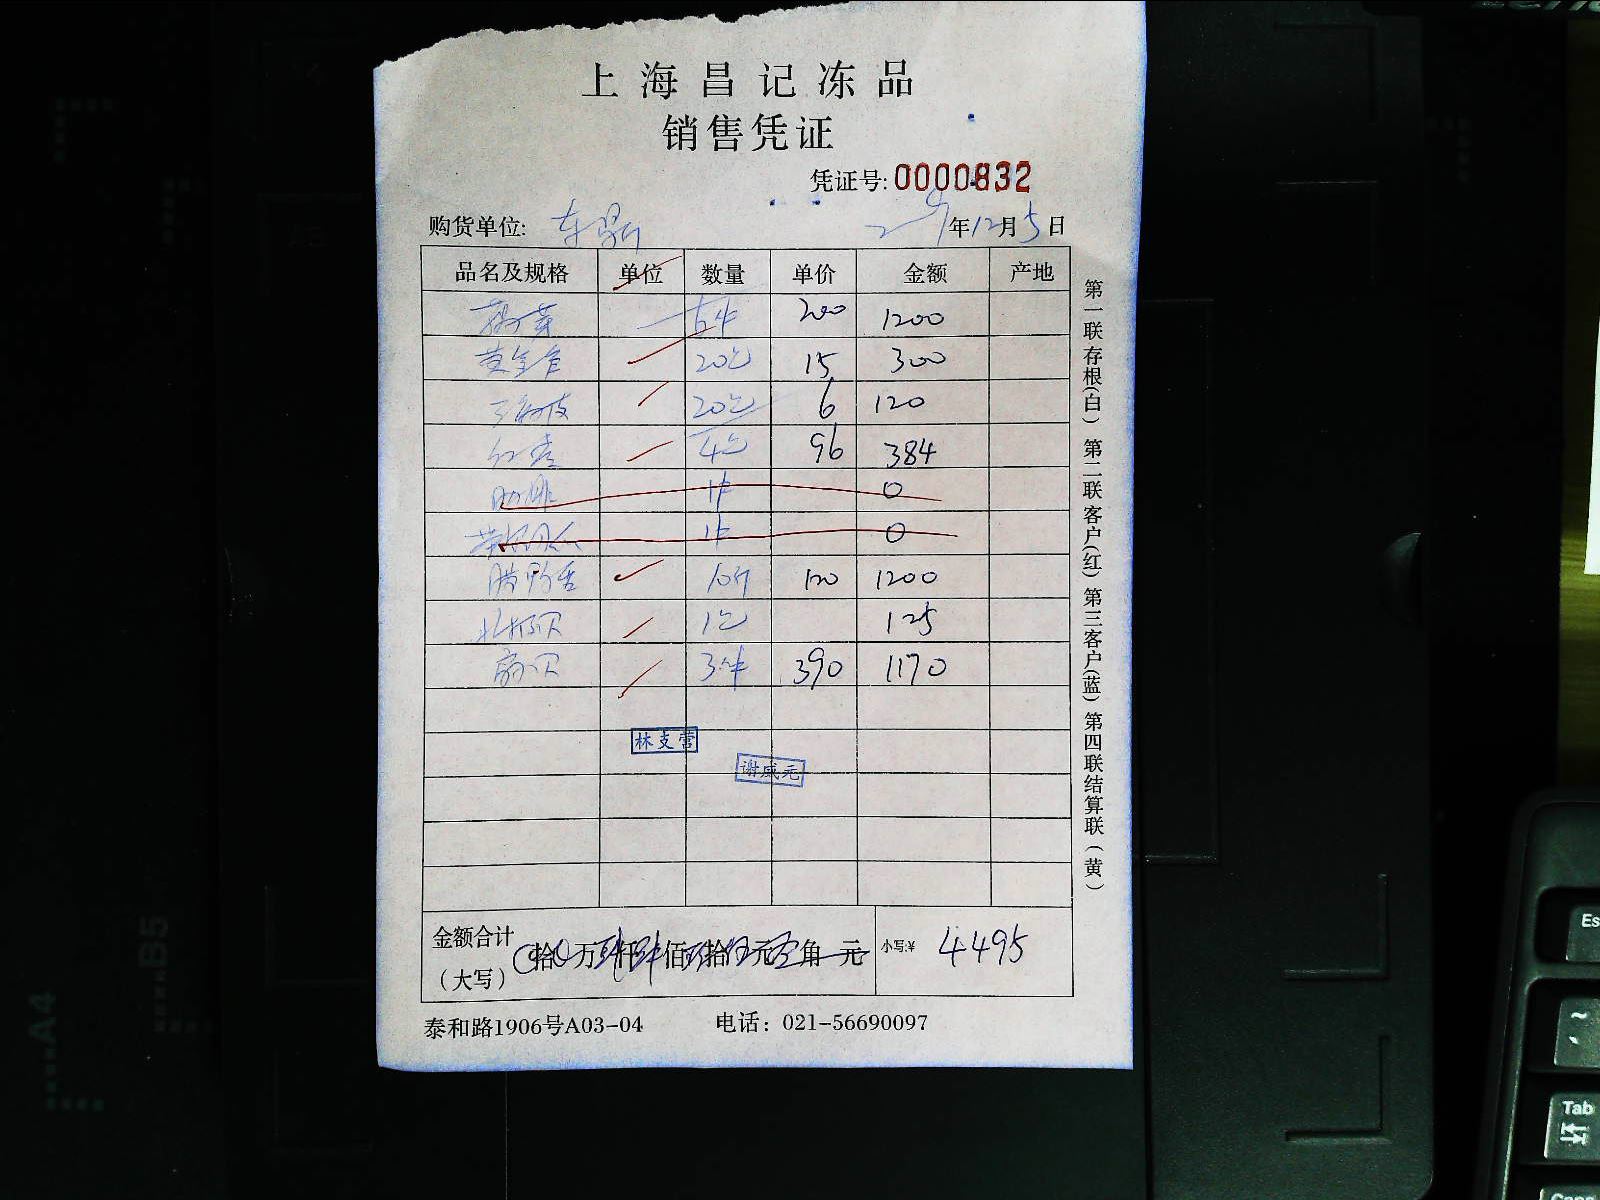 上海昌记冻品
销售凭证
凭证号:0000832
购货单位: 年12月5日
品名及规格 单位 数量 单价 金额 产地
6件 200 1200
黄金 20包 15 300
20包 6 120
红 4包 96 384
1件 0
1件 0
腊鸭舌 10斤 120 1200
北极贝 1包 125
扇贝 3件 390 1170
林支营
谢成元
金额合计(大写) 拾 万 仟 佰 拾 元 角 元 小写:¥ 4495
泰和路1906号A03-04 电话：021-56690097
第一联存根(白) 第二联客户(红) 第三客户(蓝) 第四联结算联(黄)
B5
A4
Es
Tab